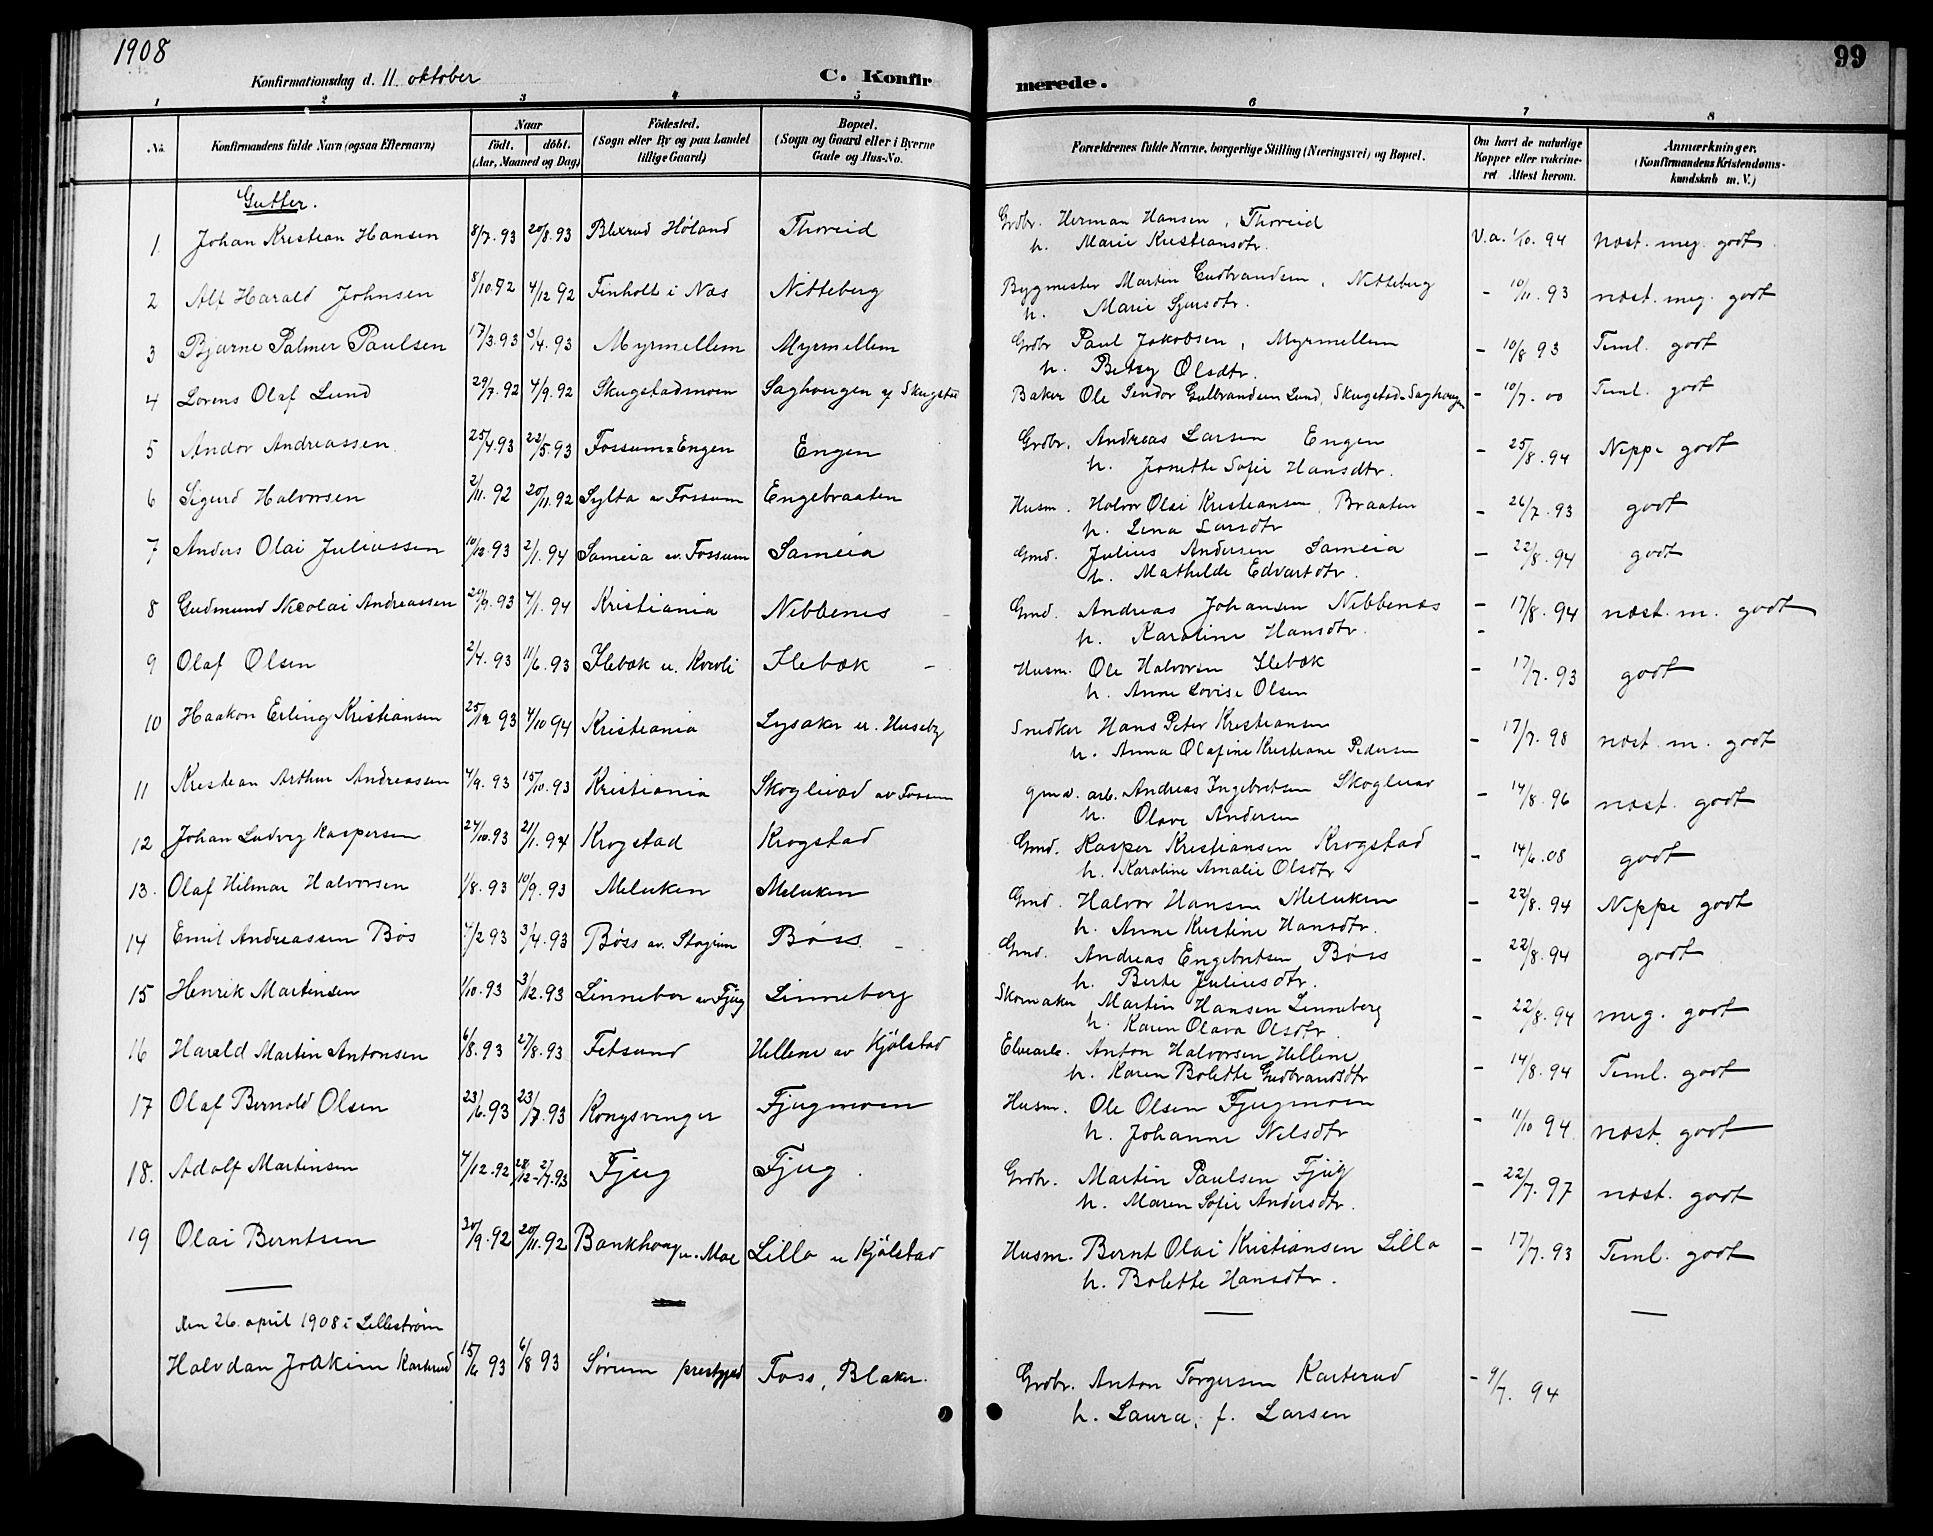 1908
99
Konfirmationsdag d. 11. oktober
C. Konfirmerede.
1 2 3 4 5 6 7 8
No.
Konfirmandens fulde Navn (ogsaa Efternavn)
Naar
født. døbt.
(Aar, Maaned og Dag)
Fødested.
(Sogn eller By og paa Landet
tillige Gaard)
Bopæl.
(Sogn og Gaard eller i Byerne
Gade og Hus-No.
Forældrenes fulde Navne, borgerlige Stilling (Næringsvei) og Bopæl.
Om havt de naturlige
Kopper eller vakcine-
ret Attest herom.
Anmærkninger.
(Konfirmandens Kristendoms-
kundskab m. V.)
Gutter.
1. Johan Kristian Hansen 8/7.93 20/8.93 Blixrud Høland Thoreid Grdbr. Herman Hansen, Thoreid V.a. 1/10.94 næst. meg. godt
h. Marie Kristiansdtr.
2 Alf Harald Johnsen 8/10.92 4/12 92 Finholt i Næs Nitteberg Bygmester Martin Gudbrandsen, Nitteberg - 10/11.93 næst. meg. godt
h. Marie
3 Bjarne Palmer Paulsen 17/3.93 3/4.93 Myrmellem Myrmellem Grdbr Paul Jakobsen, Myrmellem - 10/8 93 Teml. godt
h. Betsy Olsdtr.
4 Lorens Olaf Lund 29/7.92 4/9.92 Skugstadmoen Saghougen Baker Ole Sendor Gulbrandsen Lund, Skugstad-Saghougen - 10/7.00 Teml. godt
5 Andor Andreassen 25/4.93 22/5.93 Fossum-Engen Engen Grdbr. Andreas Larsen Engen - 25/8.94 Neppe godt
h. Jonette Sofie Hansdtr.
6 Sigurd Halvorsen 2/11.92 20/11.92 Sylta av Fossum Engebraaten Husm. Halvor Olai Kristiansen, Braaten - 26/7.93 godt
h. Lina Larsdtr
7 Anders Olai Juliussen 10/12.93 2/1.94 Sameia av. Fossum Sameia Gmd. Julius Andersen Sameia - 22/8.94 godt
h. Mathilde Edvartdtr.
8 Gudmund Nicolai Andreassen 29/9.93 7/1.94 Kristiania Nebbenes Gmd. Andreas Johansen Nebbenæs - 17/8.94 næst. m. godt
h. Karoline Hansdtr.
9 Olaf Olsen 2/4.93 11/6.93 Ilebæk u. Kvevli Ilebæk Husm. Ole Halvorsen Ilebæk - 17/7.93 godt
h. Anne Lovise Olsen
10 Haakon Erling Kristiansen 25/12 93 4/10 94 Kristiania Lysaker u. Huseby Snedker Hans Peter Kristiansen - 17/7.98 næst. m. godt
h. Anna Olafine Kristiane Pedersen
11 Kristian Arthur Andreassen 4/9.93 15/10.93 Kristiania Skoglivad av Fossum gmd. arb. Andreas Ingebretsen - 14/8.96 næst. godt
h. Olave Andersen
12 Johan Ludvig Kaspersen 24/10.93 21/1.94 Krogstad Krogstad Gmd. Kasper Kristiansen Krogstad - 14/6.08 godt
h. Karoline Amalie Olsdtr
13. Olaf Hilmar Halvorsen 1/8.93 10/9.93 Meluken Meluken Gmd. Halvor Hansen Meluken - 22/8.94 Neppe godt
h. Anne Kristine Hansdtr.
14 Emil Andreassen Bøs 7/2 93 3/4.93 Bøss av. Bøss Gmd. Andreas Engebretsen Bøss - 22/8.94 godt
h. Berte Juliusdtr.
15 Henrik Martinsen 1/10.93 3/12.93 Linneber av Fjug Linneberg Skomaker Martin Hansen Linneberg - 22/8.94 meg. godt
h. Karen Olava Olsdtr
16 Harald Martin Antonsen 6/8.93 27/8.93 Fetsund Hellene av Kjølstad Elvearb. Anton Halvorsen Hellene - 14/8.94 Teml. godt
h. Karen Bolette Gudbrandsdtr
17 Olaf Bernold Olsen 23/6.93 23/7.93 Kongsvinger Fjugmoen Husm. Ole Olsen Fjugmoen - 11/10 94 næst. godt
h. Johanne Nelsdtr
18. Adolf Martinsen 7/12.92 28/12-2/7.93 Fjug Fjug Grdbr. Martin Paulsen Fjug - 22/7.97 næst. godt
h. Maren Sofie Andersdtr.
19 Olai Berntsen 30/9.92 20/11.92 Bankhoug u. Moe Lilla u Kjølstad Husm. Bernt Olai Kristiansen Lilla - 17/7.93 Teml. godt
h. Bolette Hansdtr.
den 26. april 1908 i Lillestrøm
Halvdan Joakim Karterud 15/6 93 6/8 93 Sørum prestegjeld Foss, Blaker. Grdbr. Anton Torgersen Karterud - 9/7. 94
h. Laura, f. Larsen